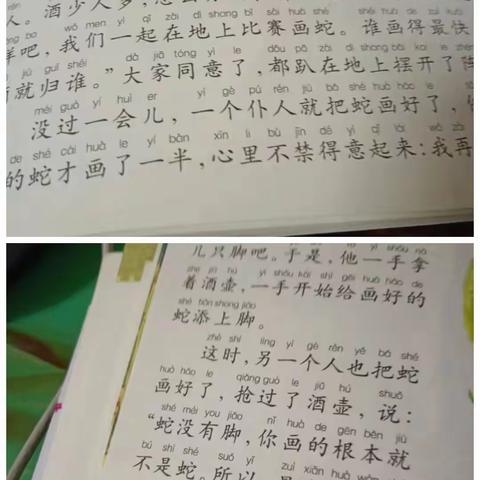 人。酒少人多,怎么
wo men yì qǐ zài dì shang bǐ sài huà shé
样吧,我们一起在地上比赛画蛇。谁画得最快
jiù guī shéi dà jiā tóng yì le dōu pā zài dì shang bǎi kāi le
就归谁。”大家同意了,都趴在地上摆开了阵
méi guò yí huì er yí gè pú rén jiù bǎ shé huà hǎo le
没过一会儿,一个仆人就把蛇画好了,
de shé cái huà le yí bàn xīn li bù jīn dé yì qǐ lái wǒ zài
的蛇才画了一半,心里不禁得意起来:我再
yì shǒu ná
几只脚吧。于是,他一手拿
zhe jiǔ hú yì shǒu kāi shǐ gěi huà hǎo de
着酒壶,一手开始给画好的
shé tiān shang jiǎo
蛇添上脚。
zhè shí lìng yí gè rén yě bǎ shé
这时,另一个人也把蛇
huà hǎo le qiǎng guò le jiǔ hú shuō
画好了,抢过了酒壶,说:
shé méi you jiǎo nǐ huà de gēn běn jiù
“蛇没有脚,你画的根本就
bú shì shé suǒ yǐ zuì xiān huà wán
不是蛇。所以